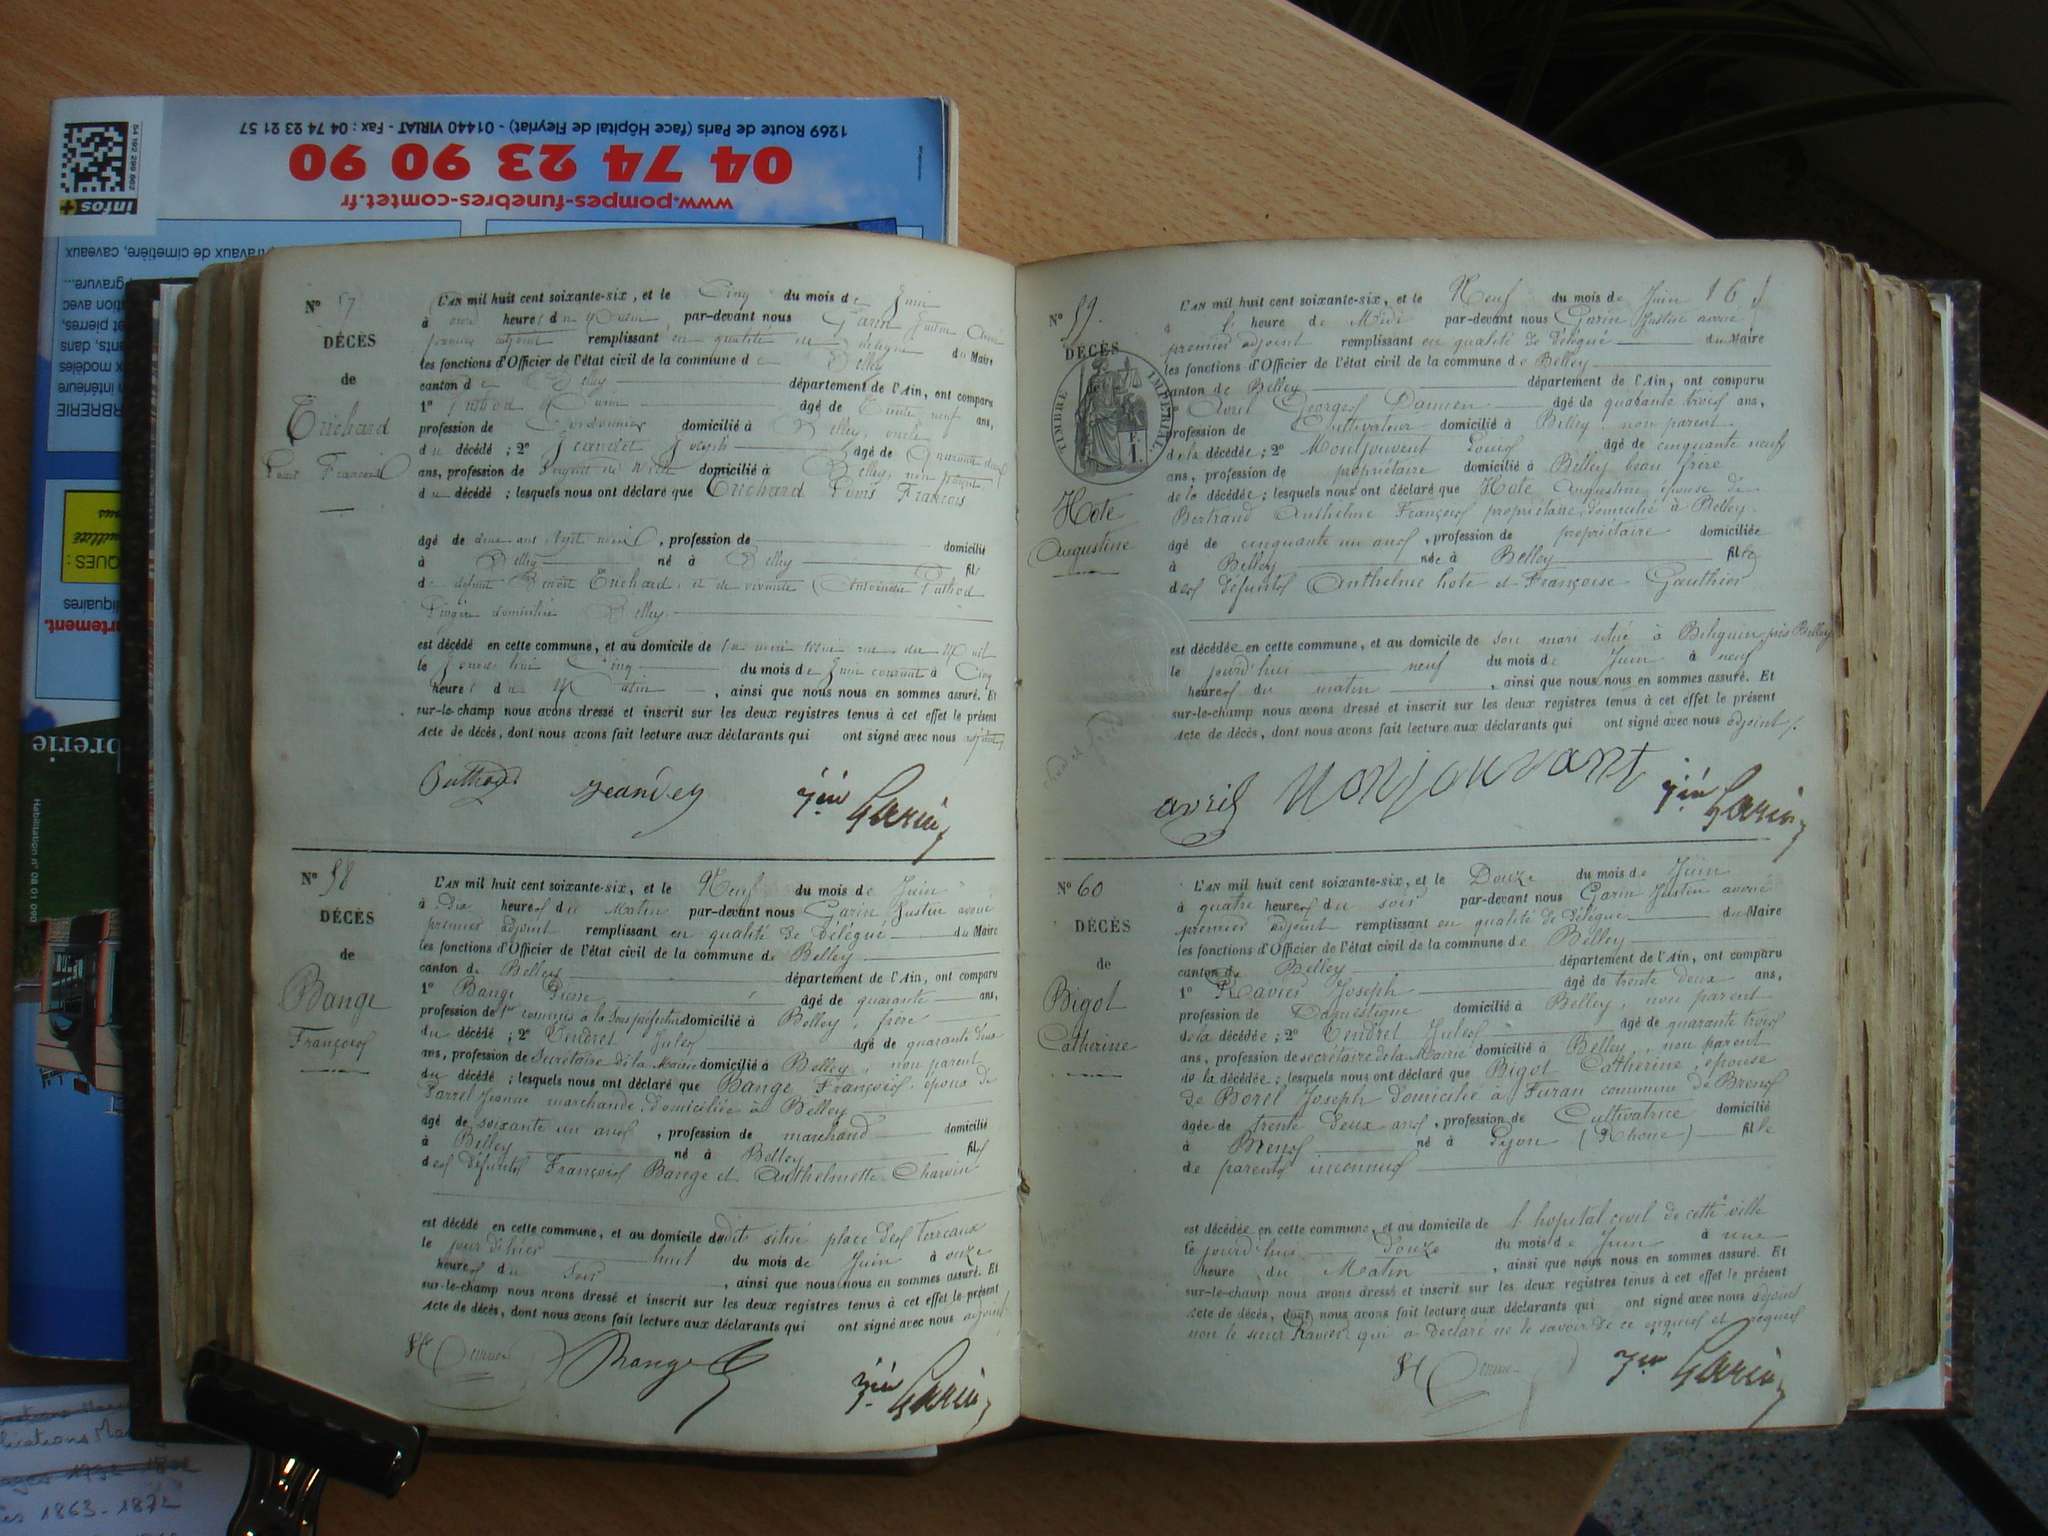 1269 Route de Paris (face Hôpital de Fleyriat) - 01440 VIRIAT - Fax : 04 74 23 21 57
04 74 23 90 90
www.pompes-funebres-comtet.fr
infos+
54 192 299 662
travaux de cimetière, caveaux
gravure...
et pierres,
dans
modèles
intérieure
liquaires
artement.
Habilitation n° 08 01 090
N° 57
DÉCÈS
de
Trichard
Louis François
L'AN mil huit cent soixante-six, et le Cinq du mois de Juin
à onze heures du Matin par-devant nous Garin Justin avoué
premier adjoint remplissant en qualité de délégué du Maire
les fonctions d'Officier de l'état civil de la commune de Belley
canton de Belley département de l'Ain, ont comparu
1° âgé de Trente neuf ans,
profession de Cordonnier domicilié à Belley, oncle
du décédé ; 2° Jeandet Joseph âgé de Quarante
ans, profession de domicilié à Belley, non parent
du décédé ; lesquels nous ont déclaré que Trichard Louis François
âgé de deux ans sept mois, profession de domicilié
à Belley né à Belley fils
de défunt Benoît Trichard, et de vivante
domiciliée Belley
est décédé en cette commune, et au domicile de sa mère rue du
le jourd'hui Cinq du mois de Juin courant à Cinq
heures du Matin, ainsi que nous nous en sommes assuré. Et
sur-le-champ nous avons dressé et inscrit sur les deux registres tenus à cet effet le présent
acte de décès, dont nous avons fait lecture aux déclarants qui ont signé avec nous adjoint
Jeandet Jin Garin
N° 58
DÉCÈS
de
Bange
François
L'AN mil huit cent soixante-six, et le Neuf du mois de Juin
à Dix heures du Matin par-devant nous Garin Justin avoué
premier adjoint remplissant en qualité de délégué du Maire
les fonctions d'Officier de l'état civil de la commune de Belley
canton de Belley département de l'Ain, ont comparu
1° Bange Pierre âgé de quarante ans,
profession de 1er commis à la Sous préfecture domicilié à Belley, frère
du décédé ; 2° Tendret Jules âgé de quarante trois
ans, profession de Secrétaire de la Mairie domicilié à Belley, non parent
du décédé ; lesquels nous ont déclaré que Bange François, époux de
Parret Jeanne marchande, domiciliée à Belley
âgé de soixante un ans, profession de marchand domicilié
à Belley né à Belley fils
des défunts François Bange et Anthelmette Charvin
est décédé en cette commune, et au domicile dudit situé place des terreaux
le jour d'hier huit du mois de Juin à onze
heures du soir, ainsi que nous nous en sommes assuré. Et
sur-le-champ nous avons dressé et inscrit sur les deux registres tenus à cet effet le présent
acte de décès, dont nous avons fait lecture aux déclarants qui ont signé avec nous adjoint
Bange Jin Garin
N° 59.
DÉCÈS
de
TIMBRE IMPÉRIAL
Hote
Augustine
16
L'AN mil huit cent soixante-six, et le Neuf du mois de Juin
à heure de Midi par-devant nous Garin Justin avoué
premier adjoint remplissant en qualité de délégué du Maire
les fonctions d'Officier de l'état civil de la commune de Belley
canton de Belley département de l'Ain, ont comparu
1° Avril Georges Damien âgé de quarante trois ans,
profession de Cultivateur domicilié à Belley, non parent
de la décédée ; 2° Montjouvent Louis âgé de cinquante neuf
ans, profession de propriétaire domicilié à Belley beau frère
de la décédée ; lesquels nous ont déclaré que Hote Augustine, épouse de
Bertrand Anthelme François propriétaire, domicilié à Belley.
âgé de cinquante un ans, profession de propriétaire domiciliée
à Belley née à Belley fille
des défunts Anthelme hote et Françoise Gauthier
est décédée en cette commune, et au domicile de son mari situé à près Belley
le jourd'hui neuf du mois de Juin à neuf
heures du matin, ainsi que nous nous en sommes assuré. Et
sur-le-champ nous avons dressé et inscrit sur les deux registres tenus à cet effet le présent
acte de décès, dont nous avons fait lecture aux déclarants qui ont signé avec nous adjoint
avril Monjouvant Jin Garin
N° 60
DÉCÈS
de
Bigot
Catherine
L'AN mil huit cent soixante-six, et le Douze du mois de Juin
à quatre heures du soir par-devant nous Garin Justin avoué
premier adjoint remplissant en qualité de délégué du Maire
les fonctions d'Officier de l'état civil de la commune de Belley
canton de Belley département de l'Ain, ont comparu
1° Ravier Joseph âgé de trente deux ans,
profession de Domestique domicilié à Belley, non parent
de la décédée ; 2° Tendret Jules âgé de quarante trois
ans, profession de secrétaire de la Mairie domicilié à Belley, non parent
de la décédée ; lesquels nous ont déclaré que Bigot Catherine, épouse
de Borel Joseph domicilié à Furan commune de Brens
âgée de trente deux ans, profession de Cultivatrice domicilié
à Brens né à Lyon (Rhône) fille
de parents inconnus
est décédée en cette commune, et au domicile de l'hopital civil de cette ville
le jourd'hui douze du mois de Juin à une
heure du Matin, ainsi que nous nous en sommes assuré. Et
sur-le-champ nous avons dressé et inscrit sur les deux registres tenus à cet effet le présent
acte de décès, dont nous avons fait lecture aux déclarants qui ont signé avec nous adjoint
non le sieur Ravier qui a déclaré ne le savoir de ce enquis et requis
Jin Garin
1863-1872